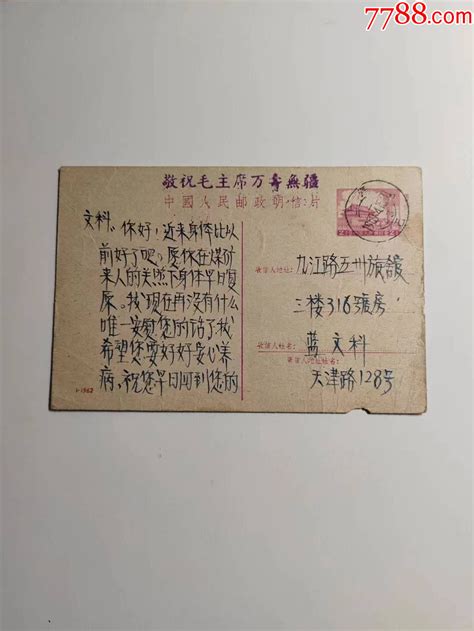 7788.com
敬祝毛主席万寿無疆
中國人民邮政明信片
文科、你好，近来身体比以
前好了吧。愿你在煤矿
来人的关照下身体早日复
原。我现在再没有什么
唯一安慰您的话了我
希望您要好好安心养
病。祝您早日回到您的
1-1962
收信人地址：九江路五州旅館
三楼316號房
收信人姓名：蓝文科
寄信人地址姓名：
天津路128号